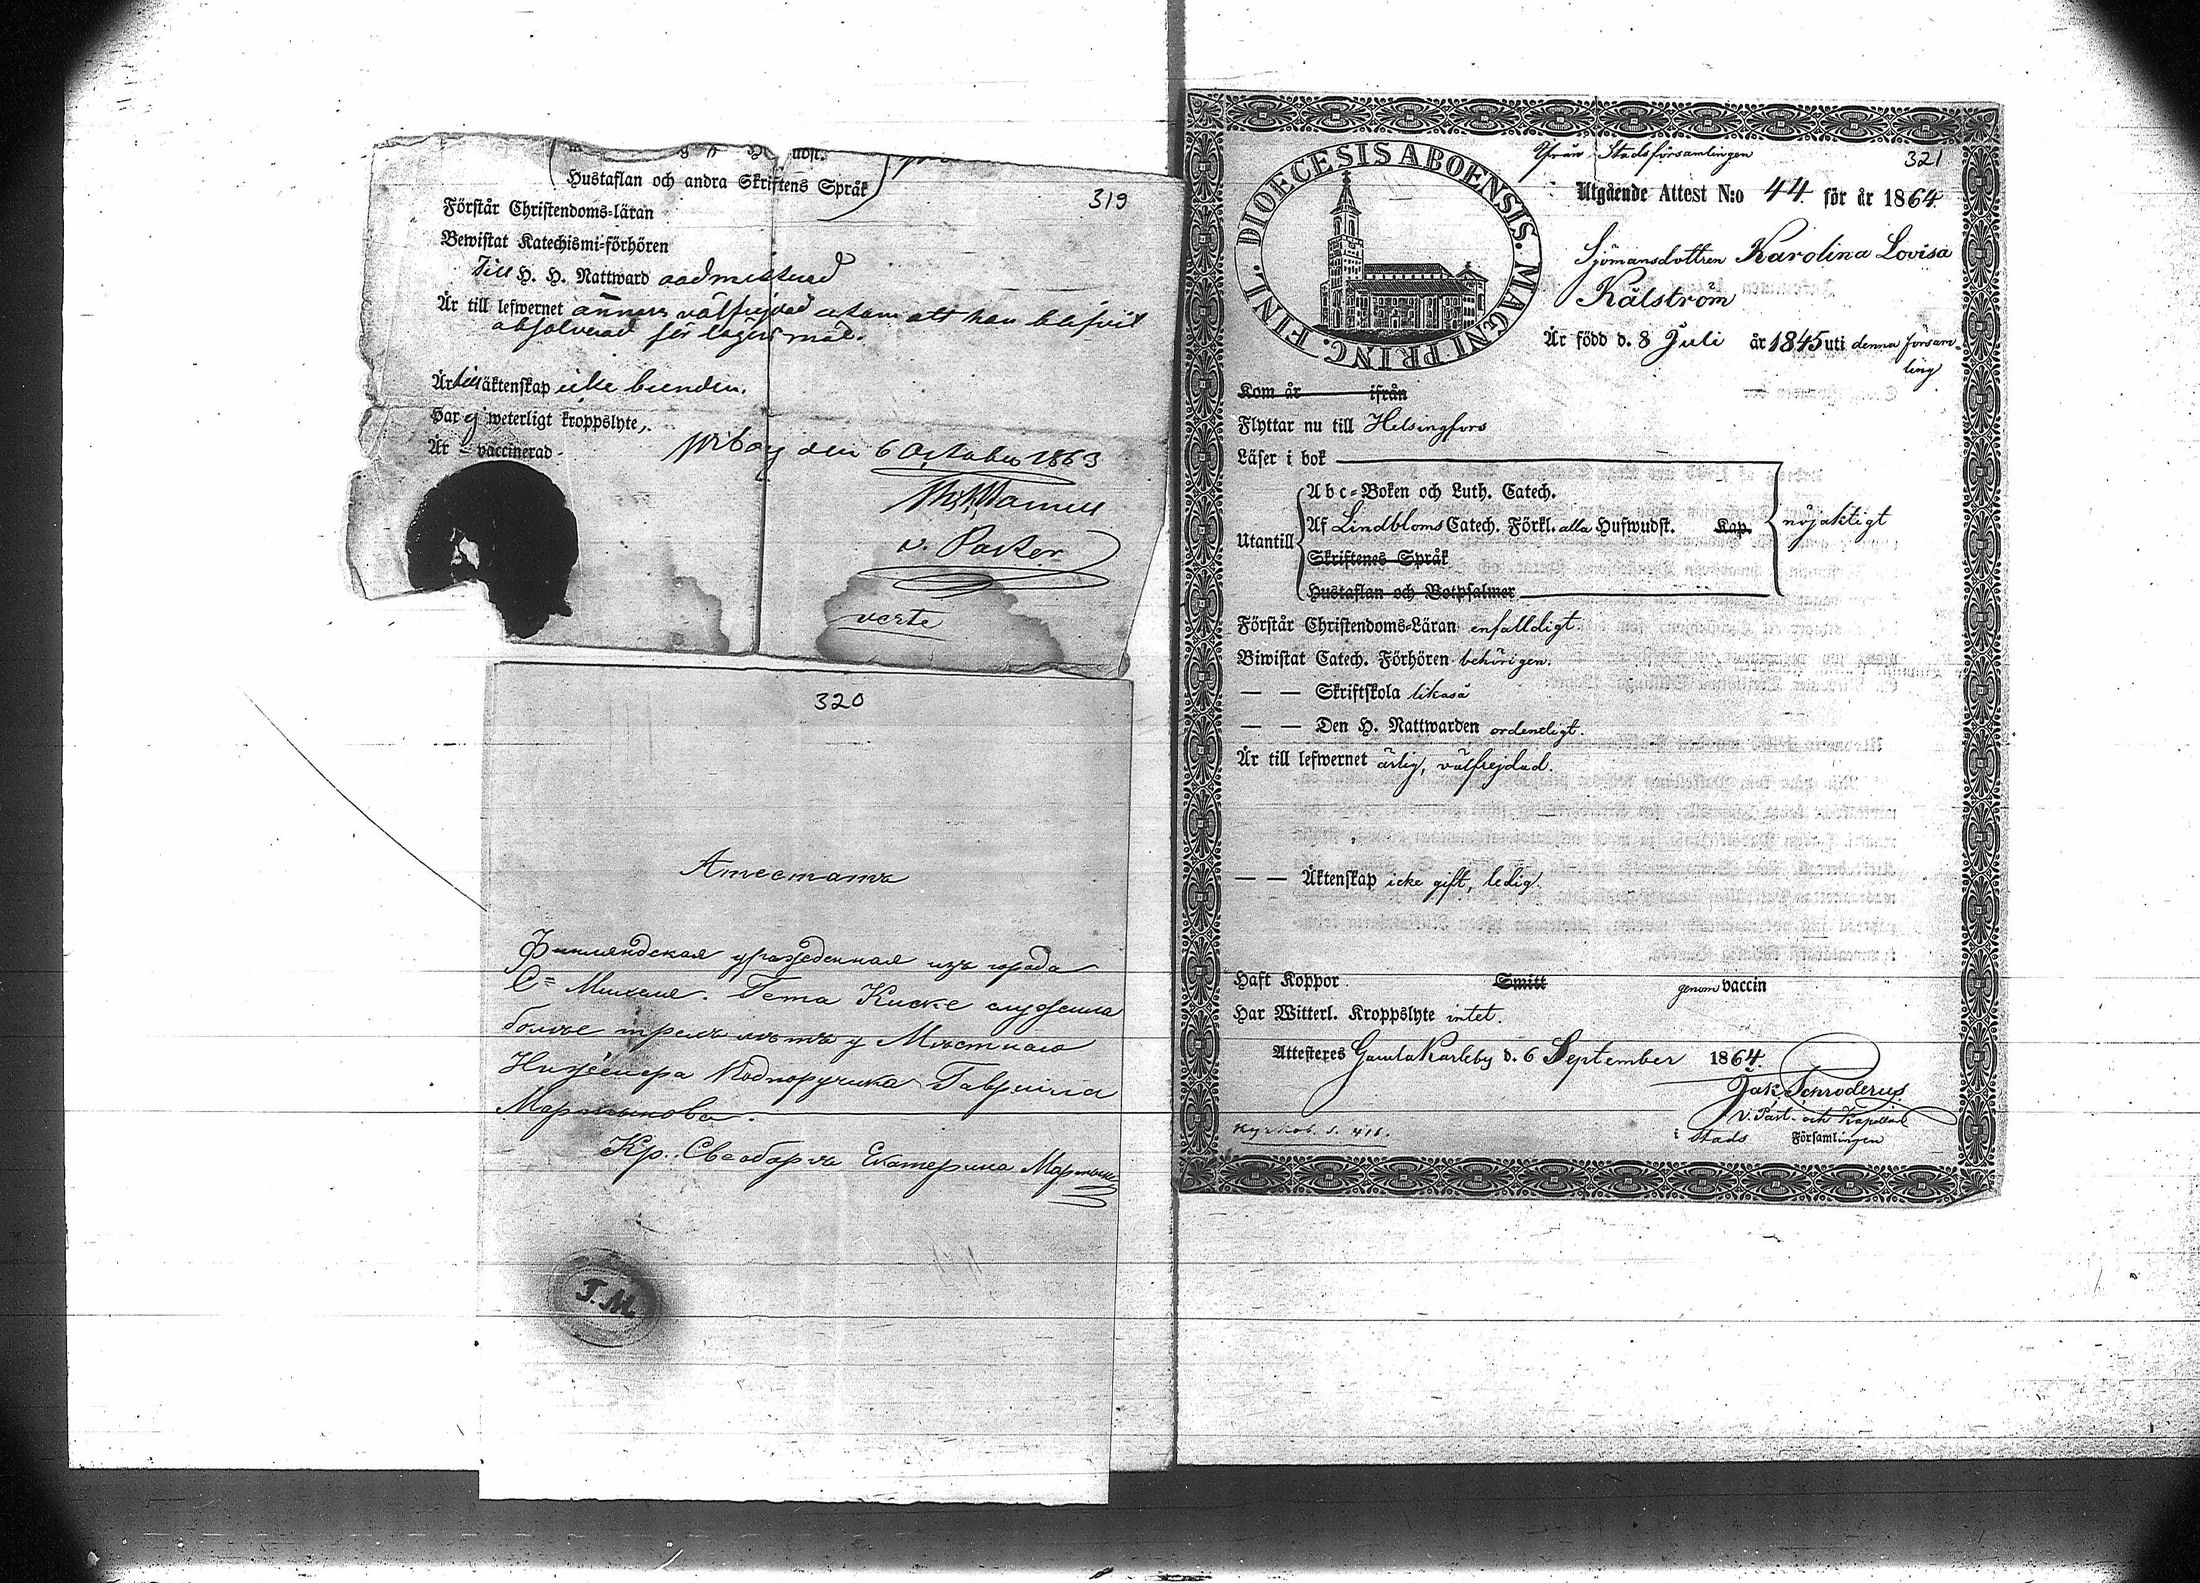 Hustaflan och andra Skriftens Språk
319
Förstår Christendoms-läran
Bewistat Katechismi-förhören
Till H. H. Nattward admitterad
Är till lefwernet annars välfrejdad utom att han blifvit
absolverad för lägersmål.
Är till äktenskap icke bunden.
Har ej weterligt kroppslyte,
Är – vaccinerad –
Wiborg den 6 October 1863
v. Pastor
verte
320
Атестатъ
Финляндская урожденная изъ города
Сᵗ Михеля. Гета Киске служила
болѣе трехъ лѣтъ у Мѣстнаго
Инженера Подпоручика Гавріила
Мартынова.
Кр. Свеаборгъ Екатерина Мартынова
Г. М.
DIOECESIS ABOENSIS. MAGNI PRINC. FINL.
Ifrån Stadsförsamlingen
321
Utgående Attest N:o 44 för år 1864
Sjömansdottren Karolina Lovisa
Kälström
Är född d. 8 Juli år 1845 uti denna försam-
ling
Kom år ifrån
Flyttar nu till Helsingfors
Läser i bok
Abc-Boken och Luth. Catech.
Utantill Af Lindbloms Catech. Förkl. alla Hufwudst. Kap. nöjaktigt
Skriftenes Språk
Hustaflan och Botpsalmer
Förstår Christendoms-Läran enfalldigt.
Biwistat Catech. Förhören behörigen.
— — Skriftskola likaså
— — Den H. Nattwarden ordentligt.
Är till lefwernet ärlig, välfrejdad.
— — Äktenskap icke gift, ledig.
Haft Koppor Smitt genom vaccin
Har Witterl. Kroppslyte intet.
Attesteres Gamla Karleby d. 6 September 1864.
Jak. Schroderus
v. Past. och Kapellan
i Stads Församlingen
Kyrkob. s. 416.